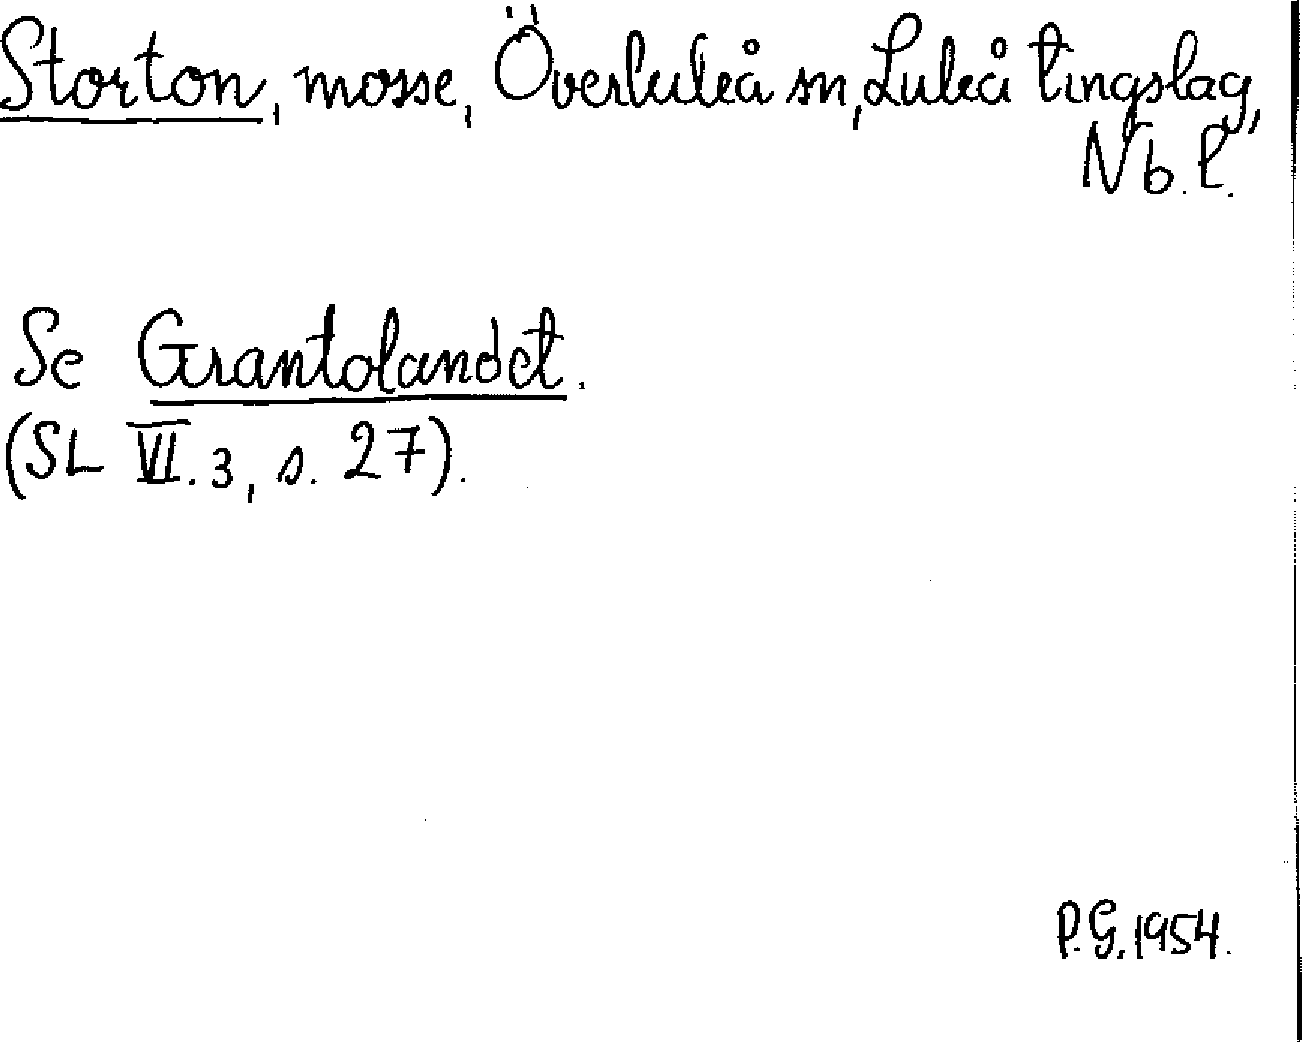 Storton, mosse, Överluleå sn, Luleå tingslag,
Nb. l.
Se Grantolandet.
(SL VI. 3, s. 27).
P. G. 1954.